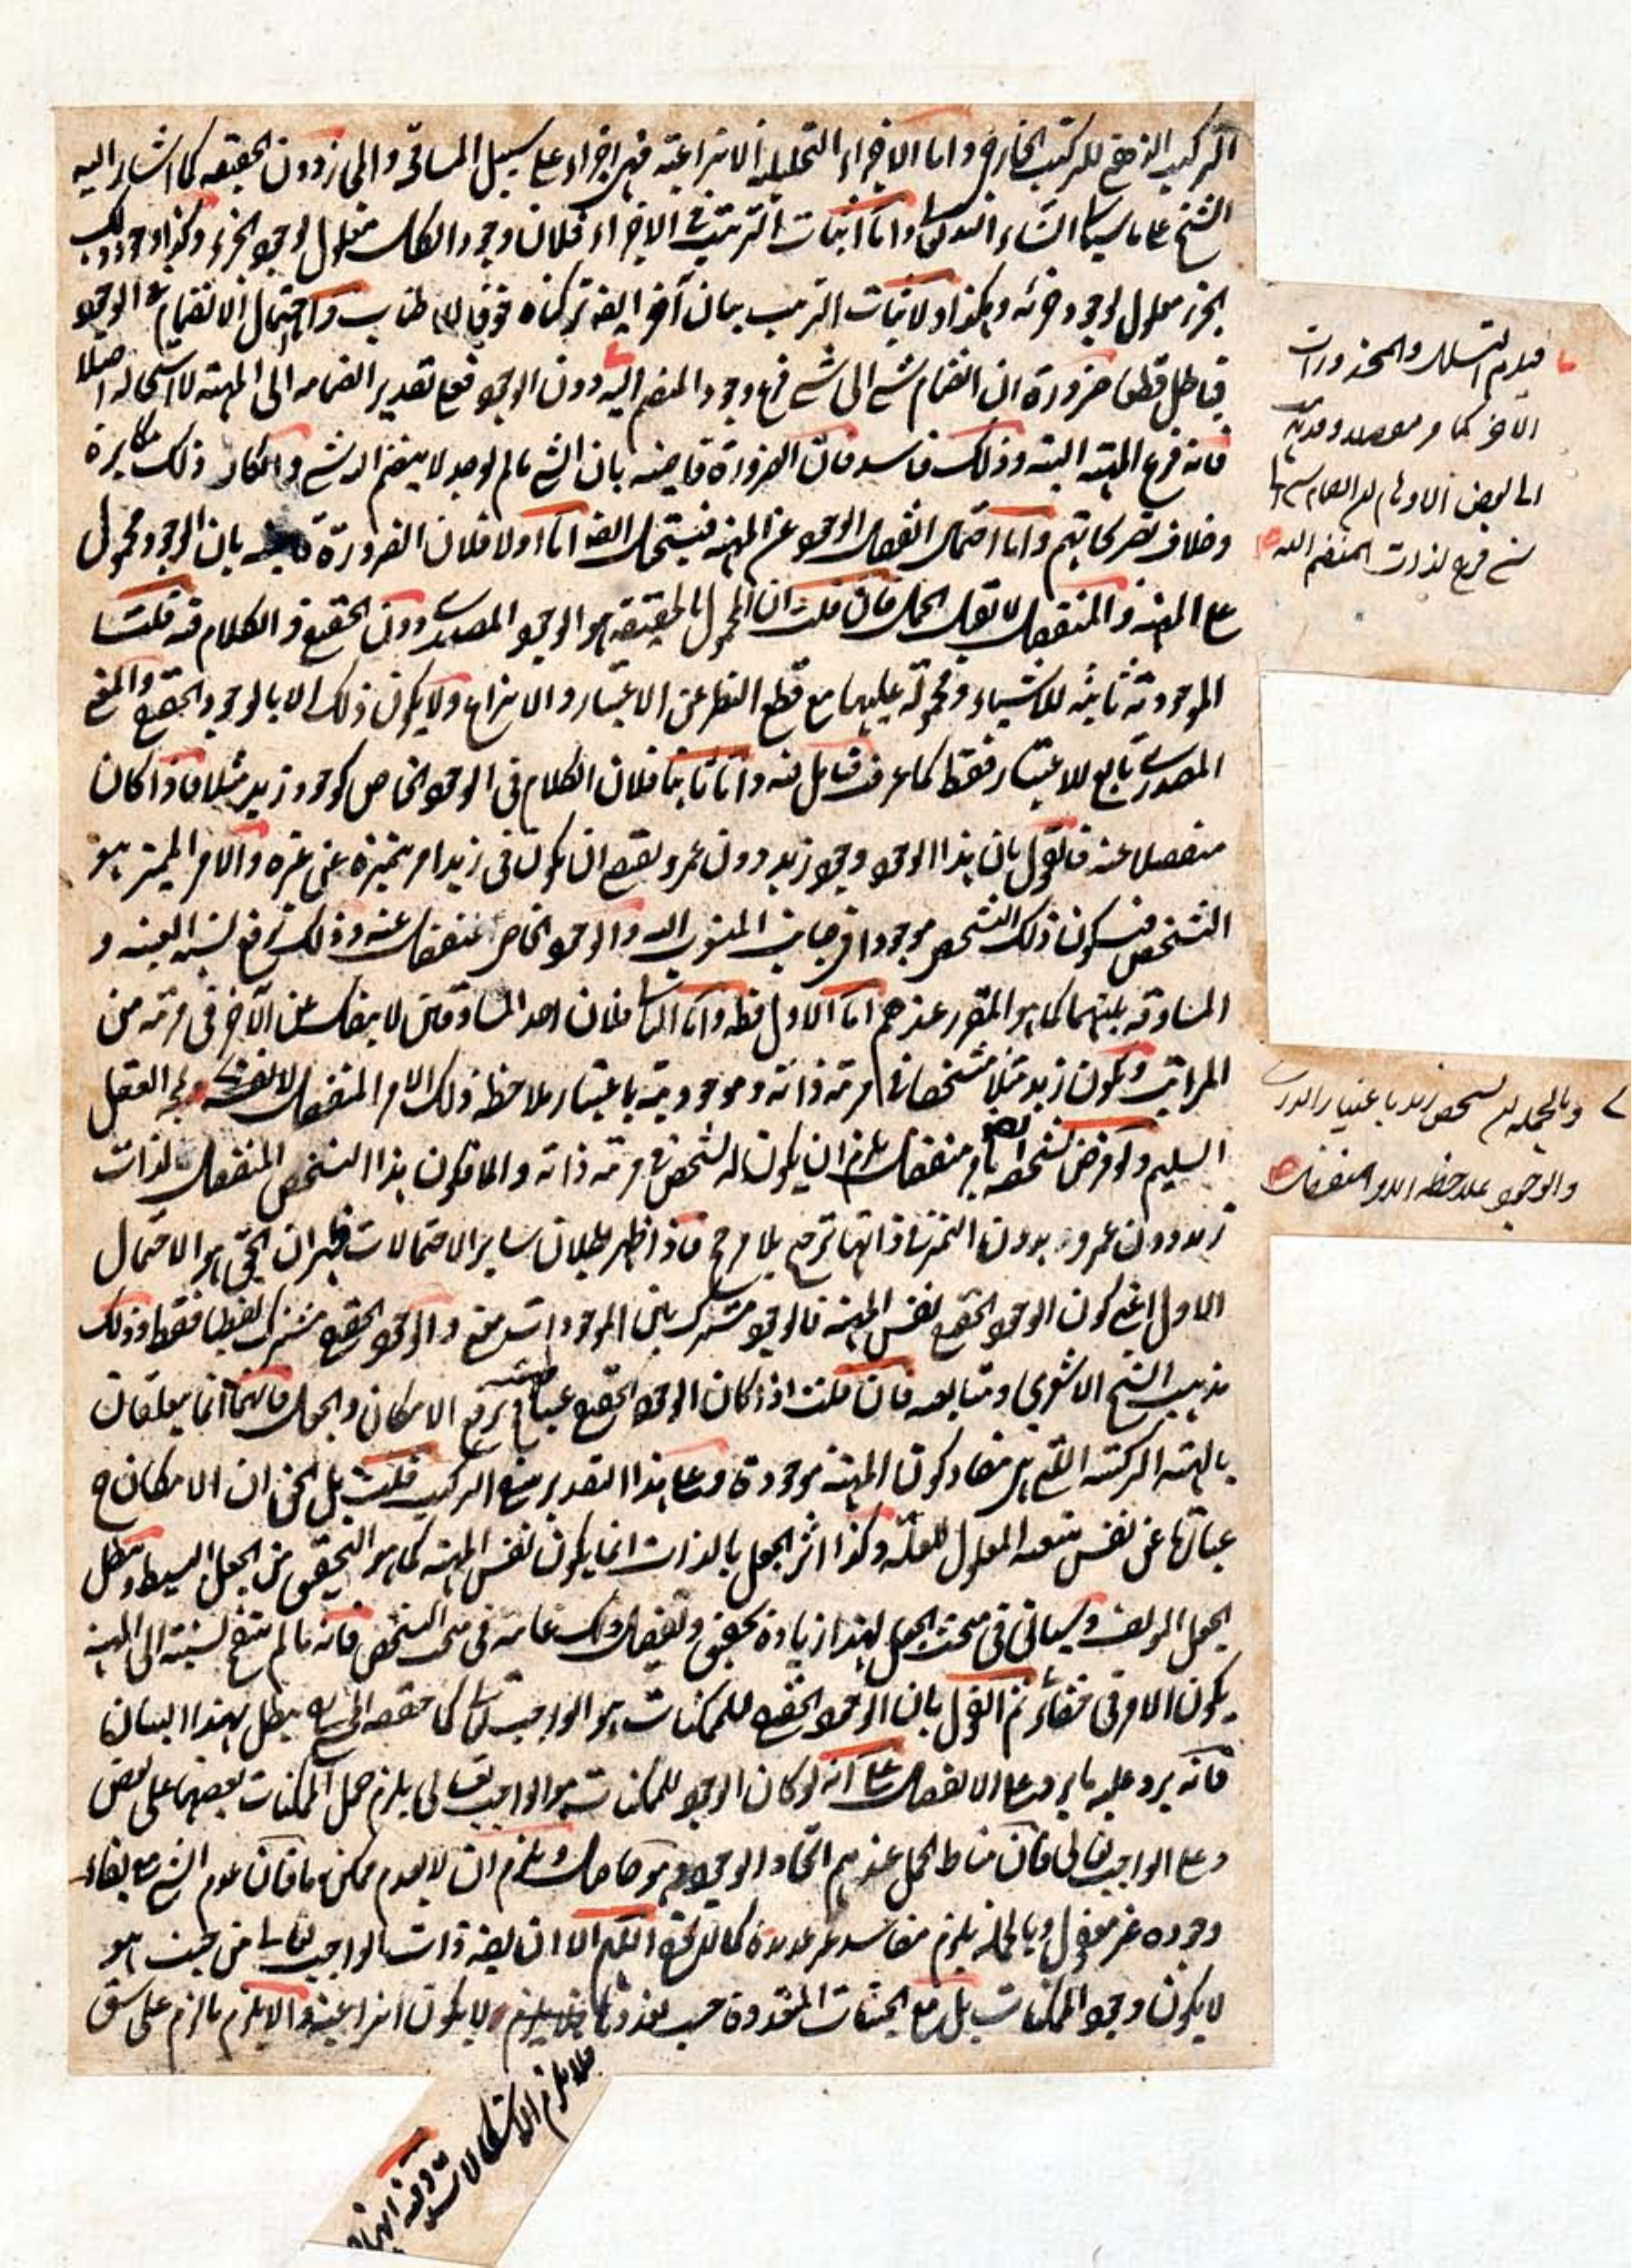 التركيب الذهني للتركيب الخارجي واما الاجزاء التحليلية الانتزاعية فهي اجزاء على سبيل المسامحة والمجاز دون الحقيقة كما اشار اليه
الشيخ على ما سياتي ان شاء الله تعالى واما اثبات الترتيب في الاجزاء فلان وجود الكل معلول لوجود الجزء وكذا وجود ذلك
الجزء معلول لوجود جزئه وهكذا ولاثبات الترتيب بيان آخر ايضا تركناه خوفا للاطناب واحتمال الانضمام في الوجود
فباطل قطعا ضرورة ان انضمام شيء الى شيء فرع وجود المنضم اليه دون الوجود فعلى تقدير انضمامه الى المهية لا استحالة اصلا
فانه فرع المهية البتة وذلك فاسد فان الضرورة قاضية بان الشيء ما لم يوجد لا ينضم اليه شيء وانكار ذلك مكابرة
وخلاف تصريحاتهم واما احتمال انفصال الوجود عن المهية فيستحيل ايضا اما اولا فلان الضرورة قاضية بان الوجود محمول
على المهية والمنفصل لا يقبل الحمل فان قلت ان المحمول بالحقيقة هو الوجود المصدري دون الحقيقي والكلام فيه قلت
الموجودية ثابتة للاشياء ومحمولة عليها مع قطع النظر عن الاعتبار والانتزاع ولا يكون ذلك الا بالوجود الحقيقي والمعنى
المصدري تابع للاعتبار فقط كما عرفت فتامل فيه واما ثانيا فلان الكلام في الوجود الخاص كوجود زيد مثلا فاذا كان
منفصلا عنه فالقول بان هذا الوجود وجود زيد دون عمرو يقتضي ان يكون في زيد امر يميزه عن غيره والامر المميز هو
التشخص فيكون ذلك التشخص موجودا في جانب المنسوب اليه والوجود الخاص منفصل عنه وذلك يرفع نسبة العينية و
المساوقة بينهما كما هو المقرر عندهم اما الاول فظ واما الثاني فلان احد المتساوقين لا ينفك عن الآخر في مرتبة من
المراتب ويكون زيد مثلا متشخصا في مرتبة ذاته وموجوديته باعتبار ملاحظة ذلك الامر المنفصل لا يقبله العقل
السليم ولو فرض تشخصه ايضا بامر منفصل يلزم ان يكون له تشخص في مرتبة ذاته والا فكون هذا التشخص المنفصل لذات
زيد دون عمرو بدون التميز في ذاتها ترجيح بلا مرجح فاذا ظهر بطلان سائر الاحتمالات فظهر ان الحق هو الاحتمال
الاول اعني كون الوجود الحقيقي نفس المهية فالوجود مشترك بين الموجودات معنى والوجود الحقيقي مشترك لفظا فقط وذلك
مذهب الشيخ الاشعري ومتابعيه فان قلت اذا كان الوجود الحقيقي عينا يرتفع الامكان والجعل فانهما انما يتعلقان
بالهيئة التركيبية التي هي مفاد كون المهية موجودة وعلى هذا التقدير منع التركيب قلت بل الحق ان الامكان ح
عبارة عن نفس المعلول للعلة وكذا اثر الجعل بالذات انما يكون نفس المهية كما هو التحقيق من الجعل البسيط وبطل
الجعل المولف وسياتي في مبحث الجعل لهذا زيادة تحقيق وتفصيل وكن على ثقة في مبحث التشخص فانه ما لم ينقح نسبته الى المهية
يكون الامر في خفاء ثم القول بان الوجود الحقيقي للممكنات هو الواجب تعالى كما حققه يبطل بهذا البيان
فانه يرد عليه ما يرد على الانفصال على انه لو كان الوجود للممكنات هو الواجب تعالى يلزم حمل الممكنات بعضها على بعض
وعلى الواجب تعالى فان مناط الحمل عندهم اتحاد الوجود وهو حاصل ويلزم ان لا يعدم ممكن ما فان عدم الشيء مع بقاء
وجوده غير معقول وبالجملة يلزم مفاسد غير عديدة كما لا يخفى اللهم الا ان يقال ذات الواجب تعالى من حيث هو
لا يكون وجود الممكنات بل مع الحيثيات المتعددة حسب تعددها ولا يكون انتزاعية والا يلزم ما لزم على شق
فلا يلزم الاستحالات وفيه
فيلزم التسلسل والمحذورات
الآخر كما مر
الى بعض الاوهام ان انضمام شيء الى
شيء فرع لذات المنضم اليه
وبالجملة تشخص زيد باعتبار الذات
والوجود بملاحظة الامر المنفصل